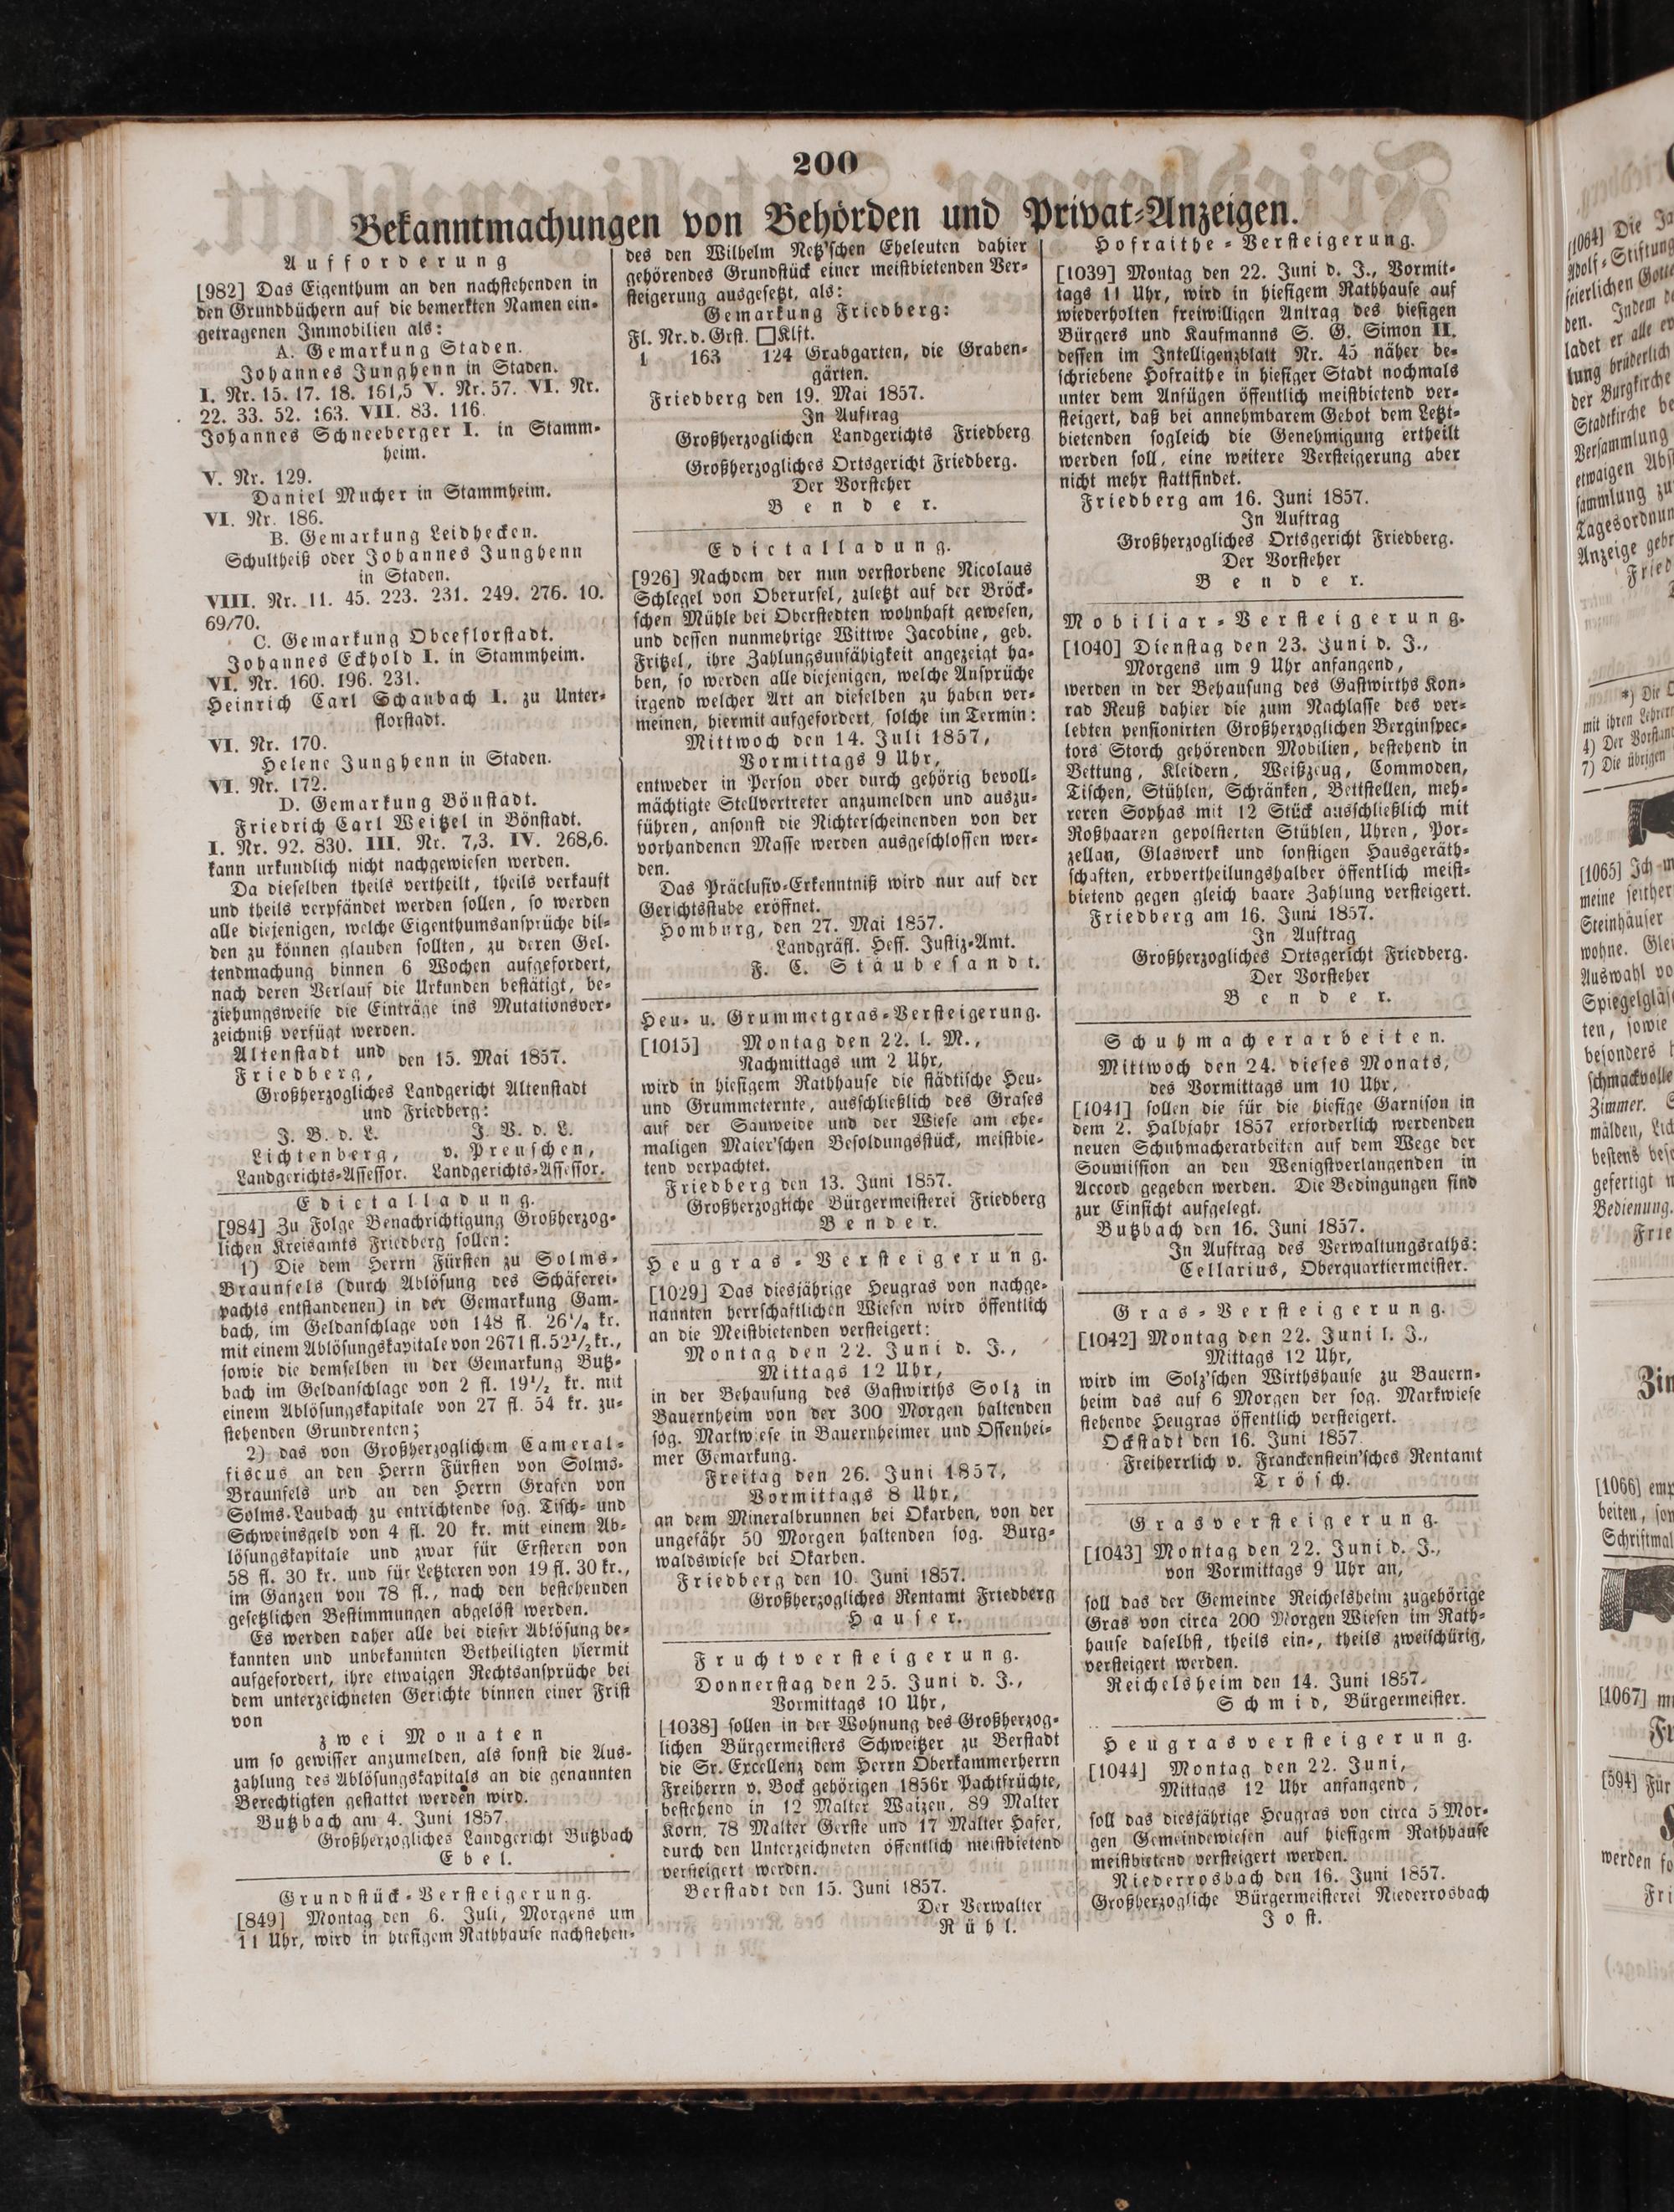 200
Bekanntmachungen von Behörden und Privat-Anzeigen.
Aufforderung
[982] Das Eigenthum an den nachstehenden in
den Grundbüchern auf die bemerkten Namen ein-
getragenen Immobilien als:
A. Gemarkung Staden.
Johannes Junghenn in Staden.
I. Nr. 15. 17. 18. 161,5 V. Nr. 57. VI. Nr.
22. 33. 52. 163. VII. 83. 116.
Johannes Schneeberger I. in Stamm-
heim.
V. Nr. 129.
Daniel Mucher in Stammheim.
VI. Nr. 186.
B. Gemarkung Leidhecken.
Schultheiß oder Johannes Junghenn
in Staden.
VIII. Nr. 11. 45. 223. 231. 249. 276. 10.
69/70.
C. Gemarkung Obceflorstadt.
Johannes Eckhold I. in Stammheim.
VI. Nr. 160. 196. 231.
Heinrich Carl Schaubach I. zu Unter-
florstadt.
VI. Nr. 170.
Helene Junghenn in Staden.
VI. Nr. 172.
D. Gemarkung Bönstadt.
Friedrich Carl Weitzel in Bönstadt.
I. Nr. 92. 830. III. Nr. 7,3. IV. 268,6.
kann urkundlich nicht nachgewiesen werden.
Da dieselben theils vertheilt, theils verkauft
und theils verpfändet werden sollen, so werden
alle diejenigen, welche Eigenthumsansprüche bil-
den zu können glauben sollten, zu deren Gel-
tendmachung binnen 6 Wochen aufgefordert,
nach deren Verlauf die Urkunden bestätigt, be-
ziehungsweise die Einträge ins Mutationsver-
zeichniß verfügt werden.
Altenstadt und
Friedberg, den 15. Mai 1857.
Großherzogliches Landgericht Altenstadt
und Friedberg:
J. V. d. L. J. V. d. L.
Lichtenberg, v. Preuschen,
Landgerichts-Assessor. Landgerichts-Assessor.
Edictalladung.
[984] Zu Folge Benachrichtigung Großherzog-
lichen Kreisamts Friedberg sollen:
1) Die dem Herrn Fürsten zu Solms-
Braunfels (durch Ablösung des Schäferei-
pachts entstandenen) in der Gemarkung Gam-
bach, im Geldanschlage von 148 fl. 26¼ kr.
mit einem Ablösungskapitale von 2671 fl. 52½ kr.,
sowie die demselben in der Gemarkung Butz-
bach im Geldanschlage von 2 fl. 19½ kr. mit
einem Ablösungskapitale von 27 fl. 54 kr. zu-
stehenden Grundrenten;
2) das von Großherzoglichem Cameral-
fiscus an den Herrn Fürsten von Solms-
Braunfels und an den Herrn Grafen von
Solms-Laubach zu entrichtende sog. Tisch- und
Schweinsgeld von 4 fl. 20 kr. mit einem Ab-
lösungskapitale und zwar für Ersteren von
58 fl. 30 kr. und für Letzteren von 19 fl. 30 kr.,
im Ganzen von 78 fl., nach den bestehenden
gesetzlichen Bestimmungen abgelöst werden.
Es werden daher alle bei dieser Ablösung be-
kannten und unbekannten Betheiligten hiermit
aufgefordert, ihre etwaigen Rechtsansprüche bei
dem unterzeichneten Gerichte binnen einer Frist
von
zwei Monaten
um so gewisser anzumelden, als sonst die Aus-
zahlung des Ablösungskapitals an die genannten
Berechtigten gestattet werden wird.
Butzbach am 4. Juni 1857.
Großherzogliches Landgericht Butzbach
Ebel.
Grundstück-Versteigerung.
[849] Montag den 6. Juli, Morgens um
11 Uhr, wird in hiesigem Rathhause nachstehen-
des den Wilhelm Netz'schen Eheleuten dahier
gehörendes Grundstück einer meistbietenden Ver-
steigerung ausgesetzt, als:
Gemarkung Friedberg:
Fl. Nr. d. Grst. □Klft.
1 163 124 Grabgarten, die Graben-
gärten.
Friedberg den 19. Mai 1857.
In Auftrag
Großherzoglichen Landgerichts Friedberg
Großherzogliches Ortsgericht Friedberg.
Der Vorsteher
Bender.
Edictalladung.
[926] Nachdem der nun verstorbene Nicolaus
Schlegel von Oberursel, zuletzt auf der Bröck-
schen Mühle bei Oberstedten wohnhaft gewesen,
und dessen nunmehrige Wittwe Jacobine, geb.
Fritzel, ihre Zahlungsunfähigkeit angezeigt ha-
ben, so werden alle diejenigen, welche Ansprüche
irgend welcher Art an dieselben zu haben ver-
meinen, hiermit aufgefordert, solche im Termin:
Mittwoch den 14. Juli 1857,
Vormittags 9 Uhr,
entweder in Person oder durch gehörig bevoll-
mächtigte Stellvertreter anzumelden und auszu-
führen, ansonst die Nichterscheinenden von der
vorhandenen Masse werden ausgeschlossen wer-
den.
Das Präclusiv-Erkenntniß wird nur auf der
Gerichtsstube eröffnet.
Homburg, den 27. Mai 1857.
Landgräfl. Hess. Justiz-Amt.
F. C. Stäubesandt.
Heu- u. Grummetgras-Versteigerung.
[1015] Montag den 22. l. M.,
Nachmittags um 2 Uhr,
wird in hiesigem Rathhause die städtische Heu-
und Grummeternte, ausschließlich des Grases
auf der Sauweide und der Wiese am ehe-
maligen Maier'schen Besoldungsstück, meistbie-
tend verpachtet.
Friedberg den 13. Juni 1857.
Großherzogliche Bürgermeisterei Friedberg
Bender.
Heugras-Versteigerung.
[1029] Das diesjährige Heugras von nachge-
nannten herrschaftlichen Wiesen wird öffentlich
an die Meistbietenden versteigert:
Montag den 22. Juni d. J.,
Mittags 12 Uhr,
in der Behausung des Gastwirths Solz in
Bauernheim von der 300 Morgen haltenden
sog. Markwiese in Bauernheimer und Ossenhei-
mer Gemarkung.
Freitag den 26. Juni 1857,
Vormittags 8 Uhr,
an dem Mineralbrunnen bei Okarben, von der
ungefähr 50 Morgen haltenden sog. Burg-
waldswiese bei Okarben.
Friedberg den 10. Juni 1857.
Großherzogliches Rentamt Friedberg
Hauser.
Fruchtversteigerung.
Donnerstag den 25. Juni d. J.,
Vormittags 10 Uhr,
[1038] sollen in der Wohnung des Großherzog-
lichen Bürgermeisters Schweitzer zu Berstadt
die Sr. Excellenz dem Herrn Oberkammerherrn
Freiherrn v. Bock gehörigen 1856r Pachtfrüchte,
bestehend in 12 Malter Waizen, 89 Malter
Korn, 78 Malter Gerste und 17 Malter Hafer,
durch den Unterzeichneten öffentlich meistbietend
versteigert werden.
Berstadt den 15. Juni 1857.
Der Verwalter
Rühl.
Hofraithe-Versteigerung.
[1039] Montag den 22. Juni d. J., Vormit-
tags 11 Uhr, wird in hiesigem Rathhause auf
wiederholten freiwilligen Antrag des hiesigen
Bürgers und Kaufmanns S. G. Simon II.
dessen im Intelligenzblatt Nr. 45 näher be-
schriebene Hofraithe in hiesiger Stadt nochmals
unter dem Anfügen öffentlich meistbietend ver-
steigert, daß bei annehmbarem Gebot dem Letzt-
bietenden sogleich die Genehmigung ertheilt
werden soll, eine weitere Versteigerung aber
nicht mehr stattfindet.
Friedberg am 16. Juni 1857.
In Auftrag
Großherzogliches Ortsgericht Friedberg.
Der Vorsteher
Bender.
Mobiliar-Versteigerung.
[1040] Dienstag den 23. Juni d. J.,
Morgens um 9 Uhr anfangend,
werden in der Behausung des Gastwirths Kon-
rad Reuß dahier die zum Nachlasse des ver-
lebten pensionirten Großherzoglichen Berginspec-
tors Storch gehörenden Mobilien, bestehend in
Bettung, Kleidern, Weißzeug, Commoden,
Tischen, Stühlen, Schränken, Bettstellen, meh-
reren Sophas mit 12 Stück ausschließlich mit
Roßhaaren gepolsterten Stühlen, Uhren, Por-
zellan, Glaswerk und sonstigen Hausgeräth-
schaften, erbvertheilungshalber öffentlich meist-
bietend gegen gleich baare Zahlung versteigert.
Friedberg am 16. Juni 1857.
In Auftrag
Großherzogliches Ortsgericht Friedberg.
Der Vorsteher
Bender.
Schuhmacherarbeiten.
Mittwoch den 24. dieses Monats,
des Vormittags um 10 Uhr,
[1041] sollen die für die hiesige Garnison in
dem 2. Halbjahr 1857 erforderlich werdenden
neuen Schuhmacherarbeiten auf dem Wege der
Soumission an den Wenigstverlangenden in
Accord gegeben werden. Die Bedingungen sind
zur Einsicht aufgelegt.
Butzbach den 16. Juni 1857.
In Auftrag des Verwaltungsraths:
Cellarius, Oberquartiermeister.
Gras-Versteigerung.
[1042] Montag den 22. Juni l. J.,
Mittags 12 Uhr,
wird im Solz'schen Wirthshause zu Bauern-
heim das auf 6 Morgen der sog. Markwiese
stehende Heugras öffentlich versteigert.
Ockstadt den 16. Juni 1857.
Freiherrlich v. Franckenstein'sches Rentamt
Trösch.
Grasversteigerung.
[1043] Montag den 22. Juni d. J.,
von Vormittags 9 Uhr an,
soll das der Gemeinde Reichelsheim zugehörige
Gras von circa 200 Morgen Wiesen im Rath-
hause daselbst, theils ein-, theils zweischürig,
versteigert werden.
Reichelsheim den 14. Juni 1857.
Schmid, Bürgermeister.
Heugrasversteigerung.
[1044] Montag den 22. Juni,
Mittags 12 Uhr anfangend,
soll das diesjährige Heugras von circa 5 Mor-
gen Gemeindewiesen auf hiesigem Rathhause
meistbietend versteigert werden.
Niederrosbach den 16. Juni 1857.
Großherzogliche Bürgermeisterei Niederrosbach
Jost.
[1064] Die
Adolf-Stiftung
feierlichen
den. Indem
ladet er alle
tung brüderlich
der Burgkirche
Stadtkirche
Versammlung
etwaigen
sammlung zu
Tagesordnun
Anzeige
Fried
*) Die
mit ihren
4) Der
7) Die übrigen
[1065] Ich
meine seither
Steinhäuser
wohne.
Auswahl
Spiegelgläs
ten, sowie
besonders
schmackvolle
Zimmer.
mälden,
bestens
gefertigt
Bedienung.
Frie
Zim
[1066] emp
beiten,
Schriftmal
[1067]
[594] Für
werden
Fri